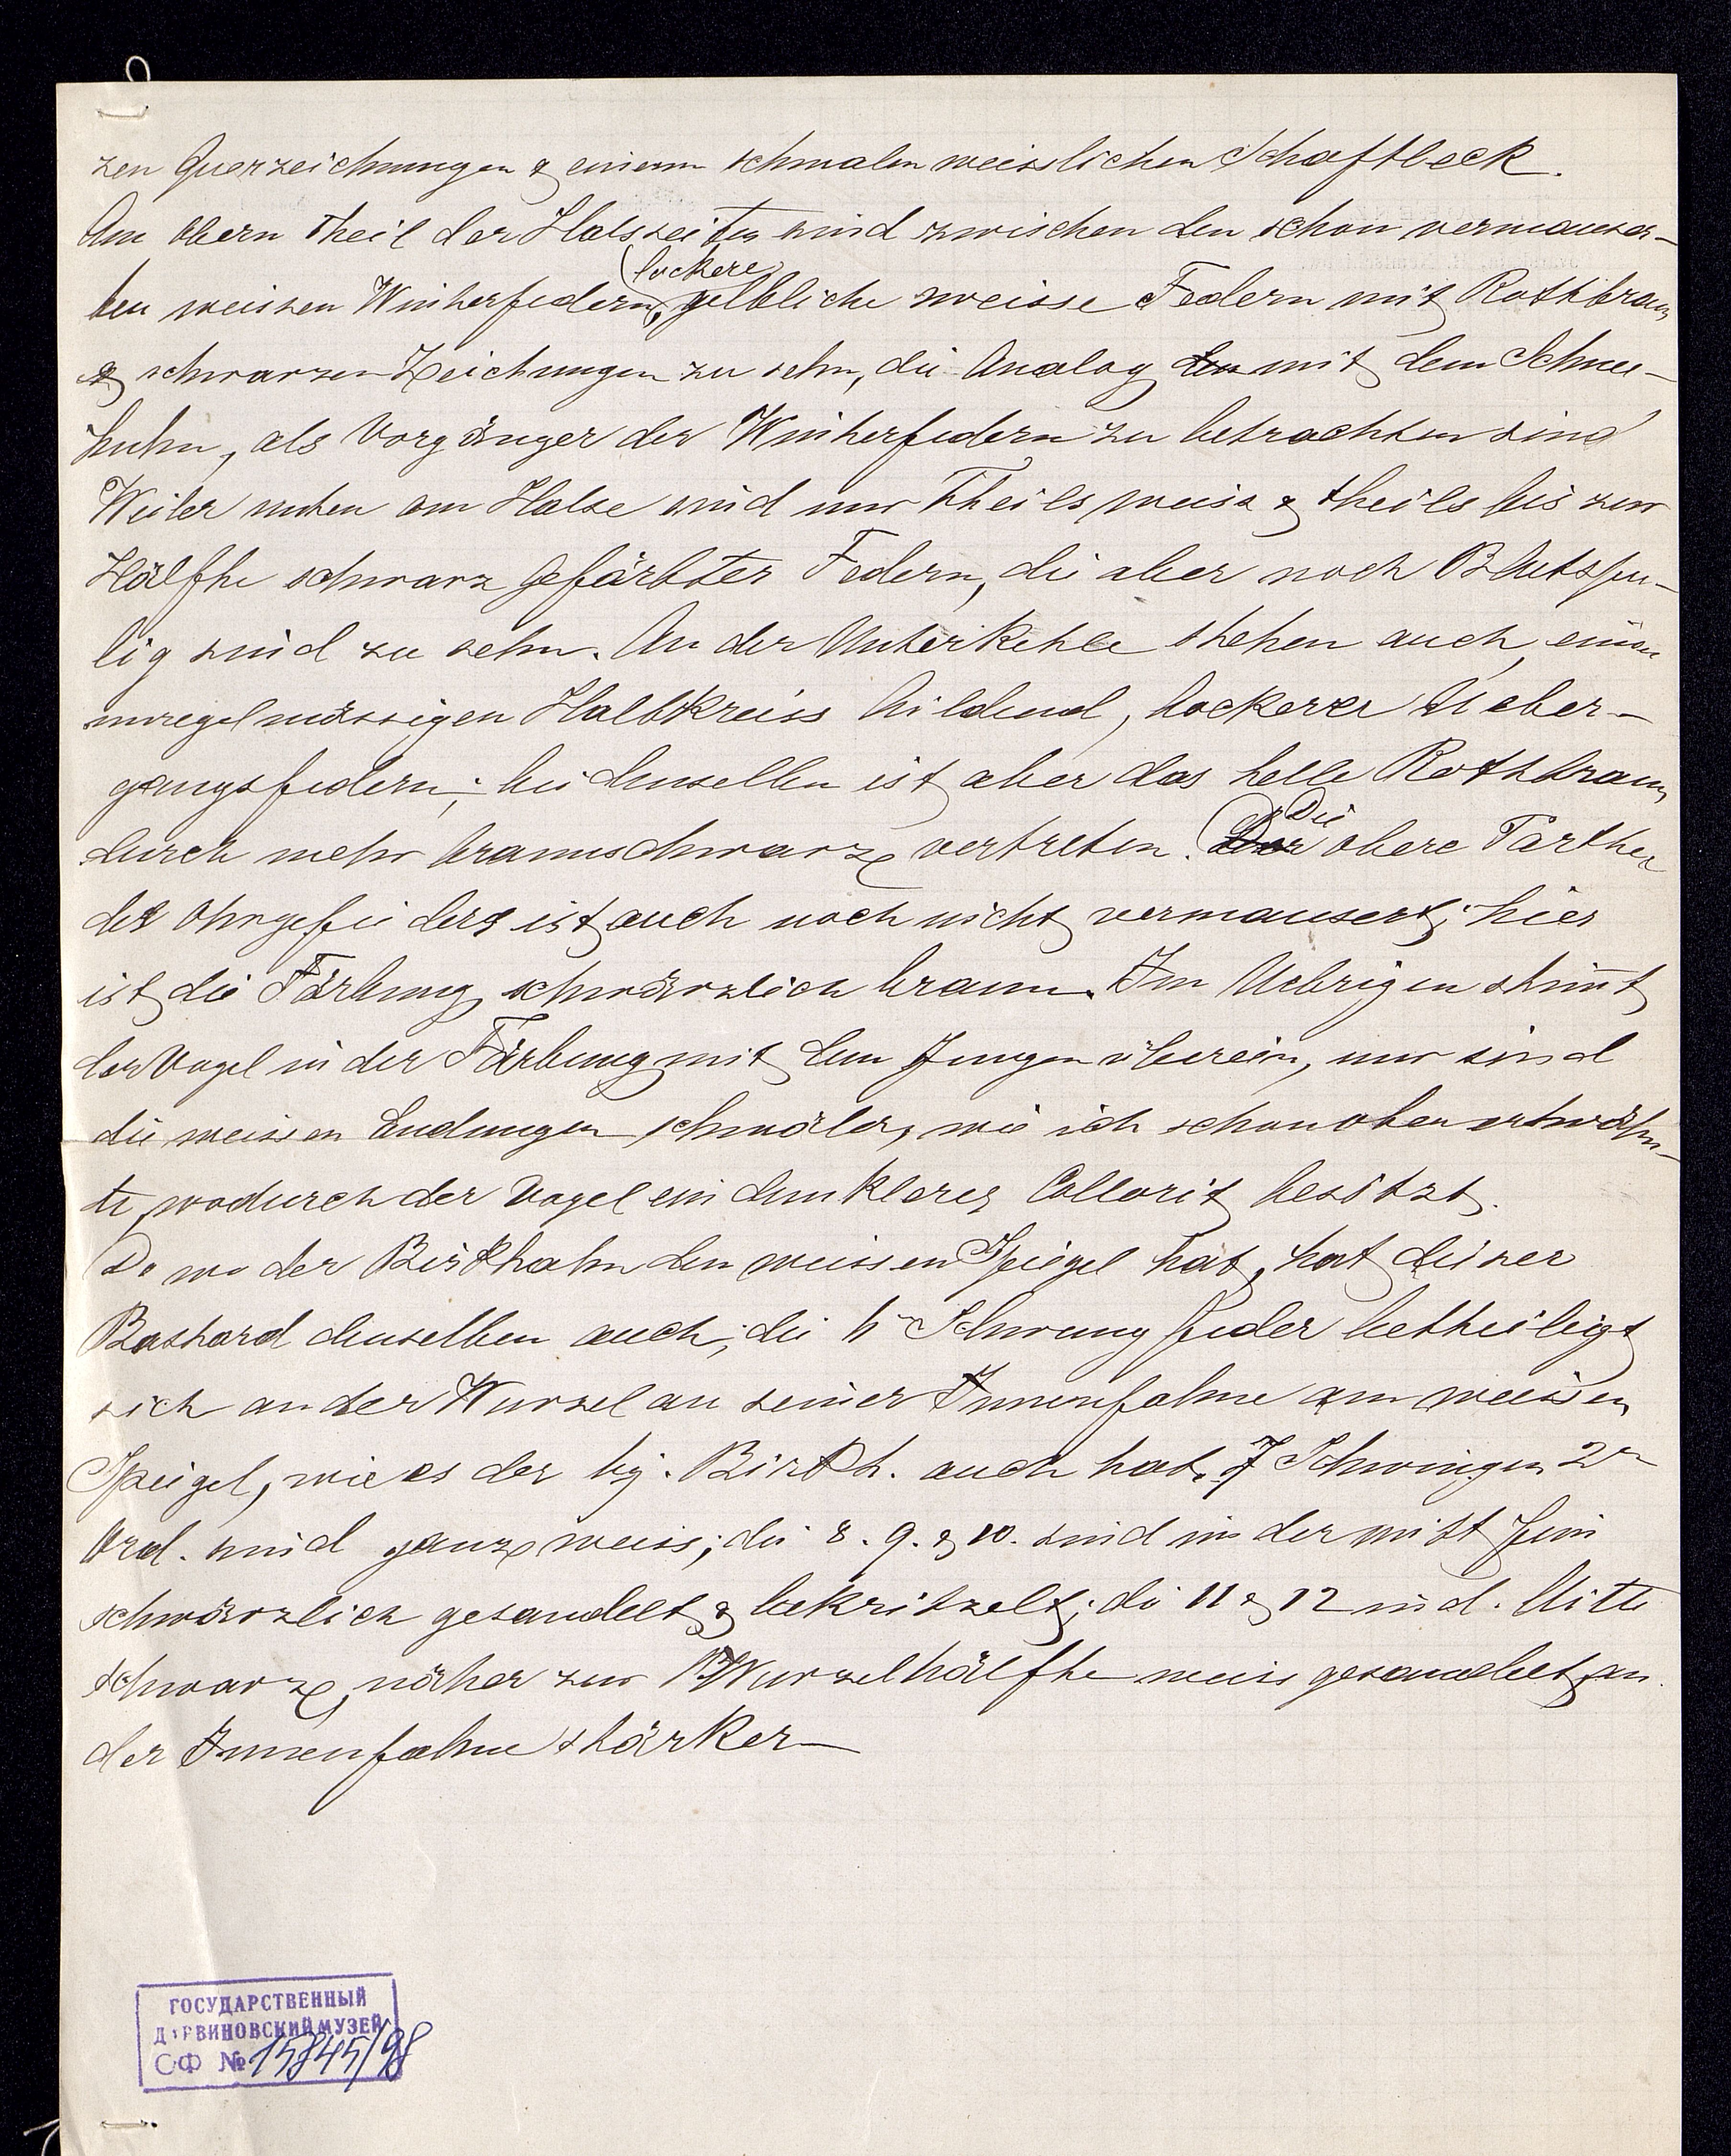 zen Querzeichnungen & einem schmalen weisslichen Schaftleck.
Am obern Theil der Halsseiten sind zwischen den schon vermauser-
lockere
ten weissen Winterfedern, gelbliche weisse Federn mit Rothbraun
& schwarzen Zeichungen zu sehn, die Analog den mit dem Schnee-
huhn, als Vorgänger der Winterfedern zu betrachten sind
Weiter unten am Halse sind nur Theils weiss & theils bis zur
Hälfte schwarz gefärbter Federn, die aber noch Blutspu-
lig sind zu sehn. An der Unterkehle stehen auch, einen
unregelmässigen Halbkreiss bildend, lockerer Ueber-
gangsfedern; bei denselben ist aber das helle Rothbraun
Die
durch mehr braunschwarz vertreten. Der obere Parthei
des Ohrgefieders ist auch noch nicht vermausert; hier
ist die Färbung schwärzlich braun. Im Uebrigen stim̅t
der Vogel in der Färbung mit dem Jungen überein, nur sind
die weissen Endungen schmäler, wie ich schon oben erwähn-
te, wodurch der Vogel ein dunkleres Collorit besitzt.
Do wo der Birkhahn den weissen Spiegel hat, hat dieser
Bastard denselben auch; die Schwungfeder betheiligt
sich an der Wurzel an seiner Innenfahne am weissen
Spiegel, wie es der Birkh. auch hat. 7 Schwingen 2r
Ord. sind ganz weiss; die 8. 9. & 10. sind in der mitt fein
schwärzlich gesandelt & bekritzelt; di 11 & 12 in d. Mitte
schwarz, näher zur Wurzelhälfte weiss gesandelt an
der Innenfahne stärker
ГОСУДАРСТВЕННЫЙ
ДАРВИНОВСКИЙ МУЗЕЙ
СФ № 15845/98